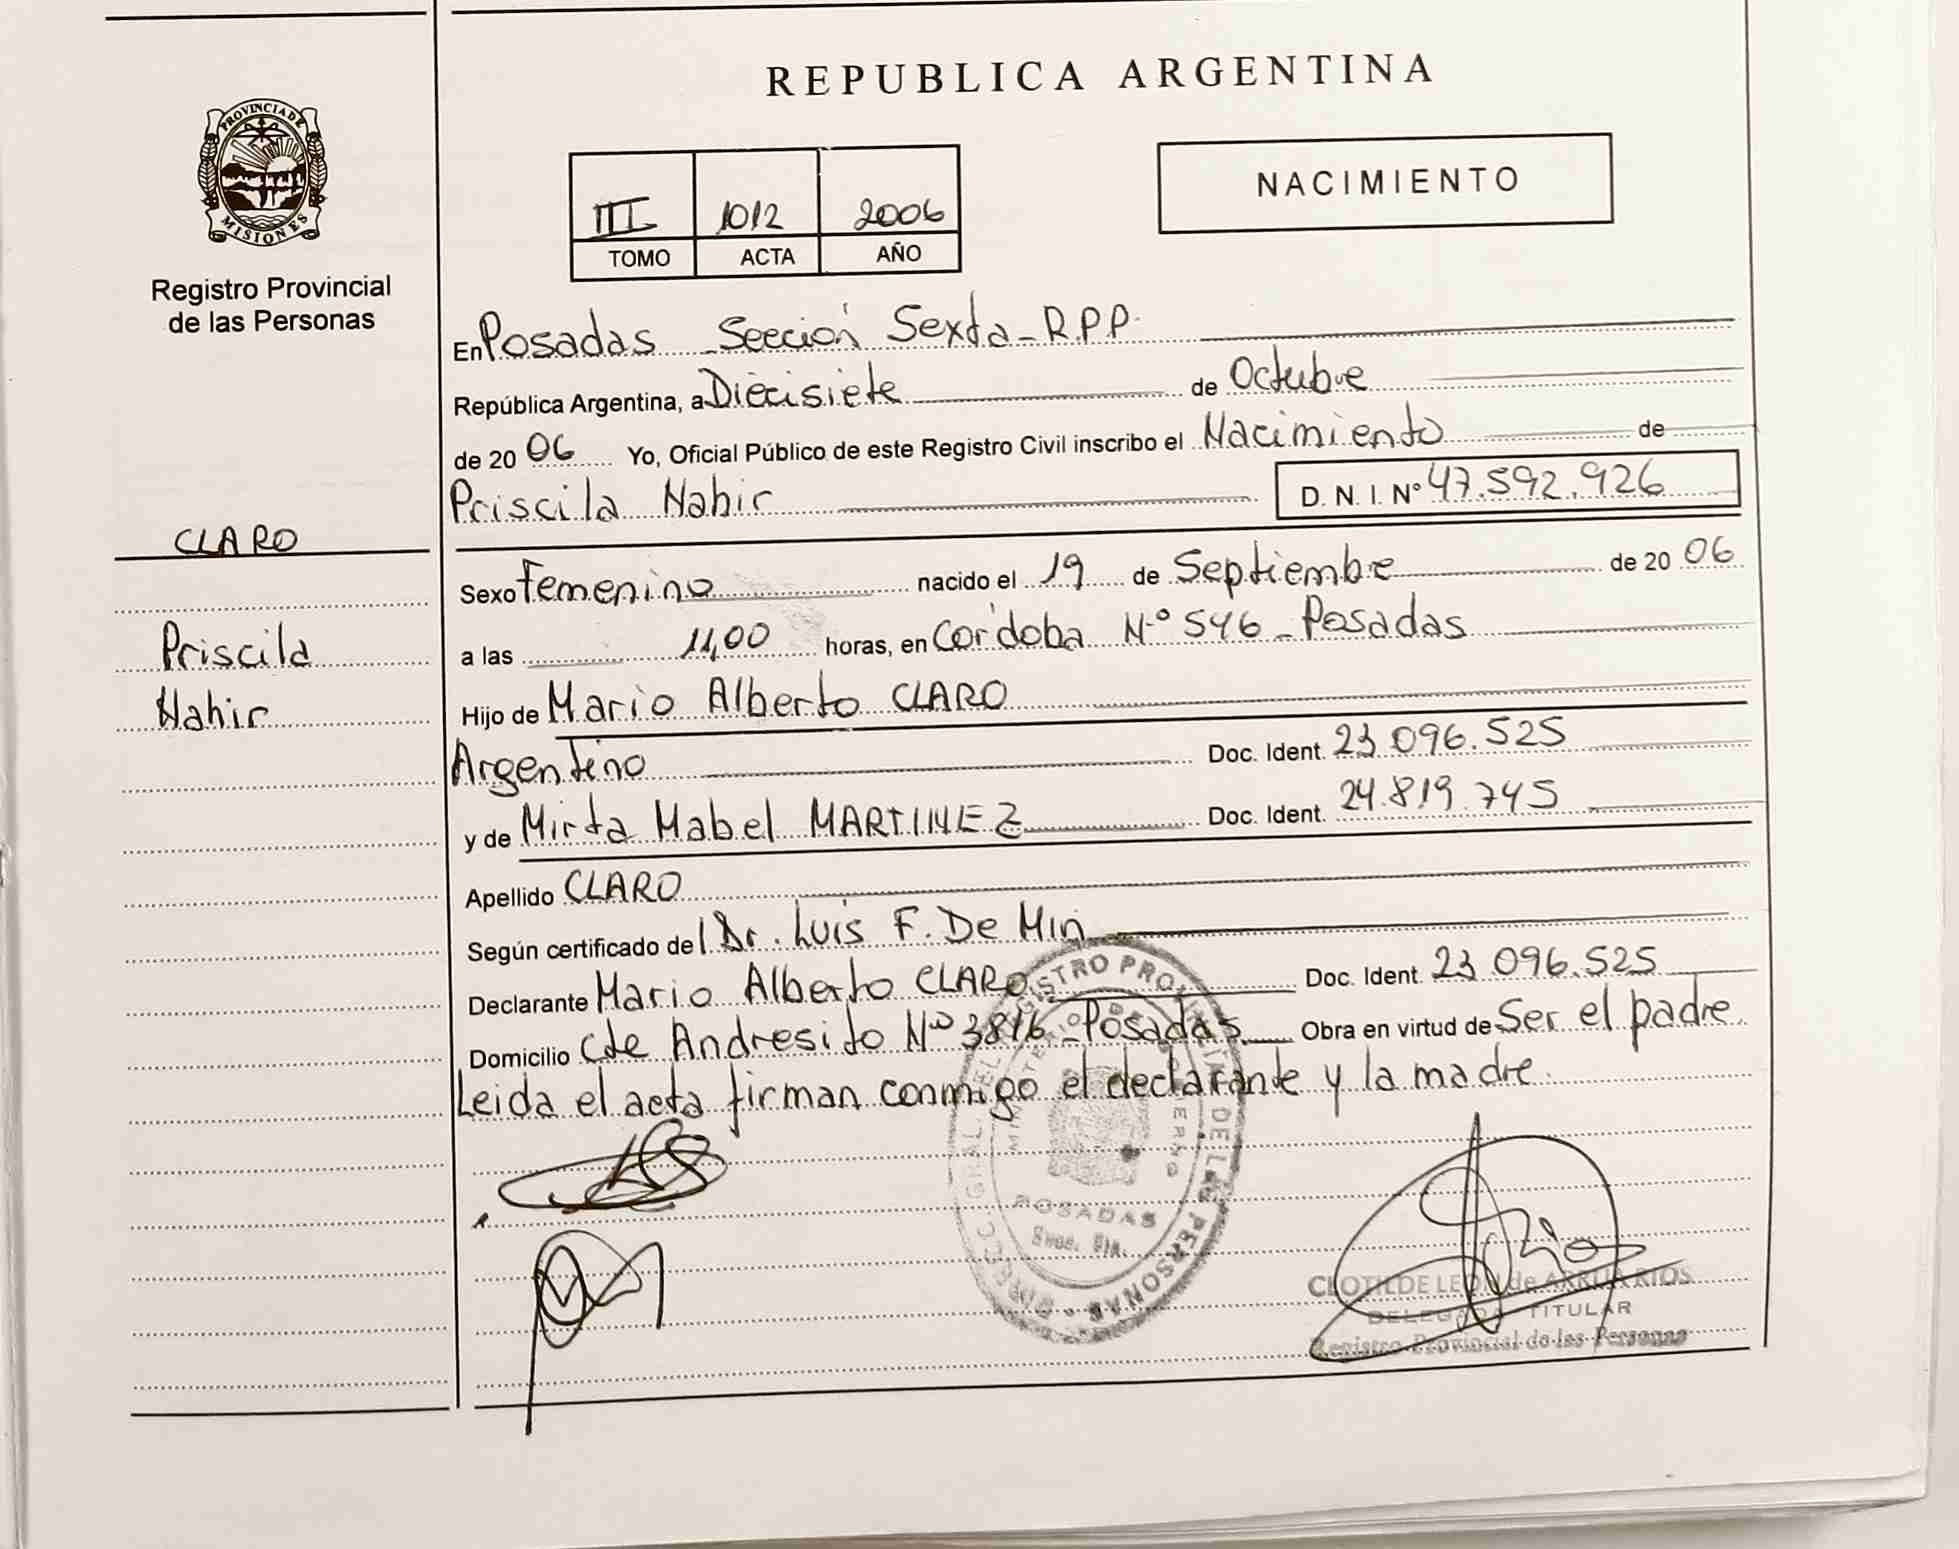 REPUBLICA ARGENTINA
PROVINCIA DE
MISIONES
Registro Provincial
de las Personas
III 1012 2006
TOMO ACTA AÑO
NACIMIENTO
En Posadas - Sección Sexta - R.P.P.
República Argentina, a Diecisiete de Octubre
de 20 06 Yo, Oficial Público de este Registro Civil inscribo el Nacimiento de
Priscila Nahir D. N. I. Nº 47.592.926
CLARO
Priscila
Nahir
Sexo Femenino nacido el 19 de Septiembre de 20 06
a las 11,00 horas, en Córdoba Nº 546 - Posadas
Hijo de Mario Alberto CLARO
Argentino Doc. Ident. 23 096.525
y de Mirta Mabel MARTINEZ Doc. Ident. 24.819.745
Apellido CLARO
Según certificado del Dr. Luis F. De Min
Declarante Mario Alberto CLARO Doc. Ident. 23 096.525
Domicilio Cte Andresito Nº 3816 - Posadas Obra en virtud de Ser el padre
Leida el acta firman conmigo el declarante y la madre.
POSADAS
CLOTILDE LEON de ARRUA RIOS
DELEGADA TITULAR
Registro Provincial de las Personas